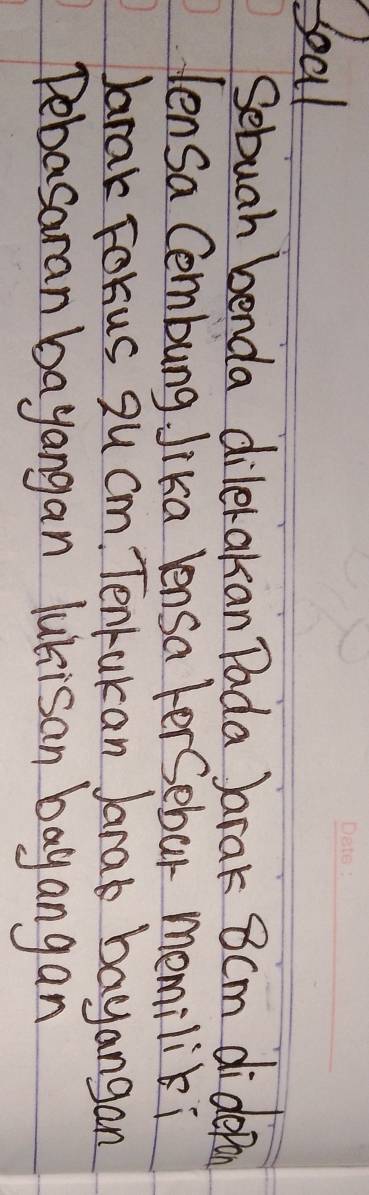 Soal
Date:
Sebuah benda diletakan Pada Jarak 8cm didepan
lensa Cembung. Jika lensa tersebut memiliki
Jarak Fokus 24 cm. Tentukan Jarak bayangan
Pebasaran bayangan lukisan bayangan